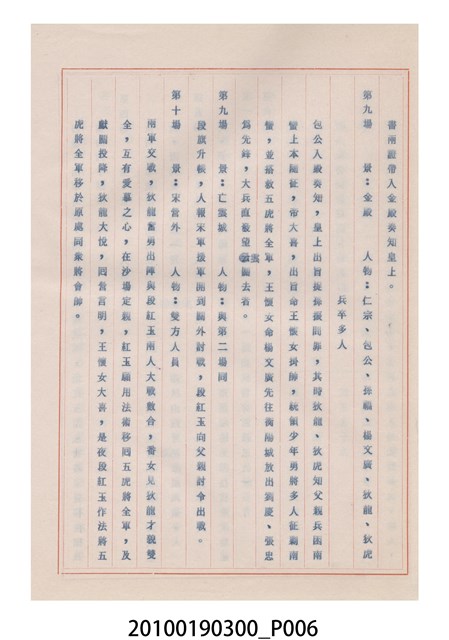 書兩證帶入金殿奏知皇上。
第九場 景：金殿 人物：仁宗、包公、孫福、楊文廣、狄龍、狄虎
兵卒多人
包公入殿奏知，皇上出旨捉孫振問罪，其時狄龍、狄虎知父親兵困南
蠻上本隨征，帝大喜，出旨命王懷女掛帥，統領少年勇將多人征討南
蠻，並搭救五虎將全軍，王懷女命楊文廣先往衡陽城放出劉慶、張忠
為先鋒，大兵直殺望蒙雲關去者。
第九場 景：亡靈城 人物：與第二場同
段旗升帳，人報宋軍援軍開到關外討戰，段紅玉向父親討令出戰。
第十場 景：宋營外 人物：雙方人員
兩軍交戰，狄龍奮勇出陣與段紅玉兩人大戰數合，番女見狄龍才貌雙
全，互有愛慕之心，在沙場定親，紅玉願用法術移回五虎將全軍，及
獻關投降，狄龍大悅，回營言明，王懷女大喜，是夜段紅玉作法將五
虎將全軍移於原處同眾將會師。
20100190300_P006